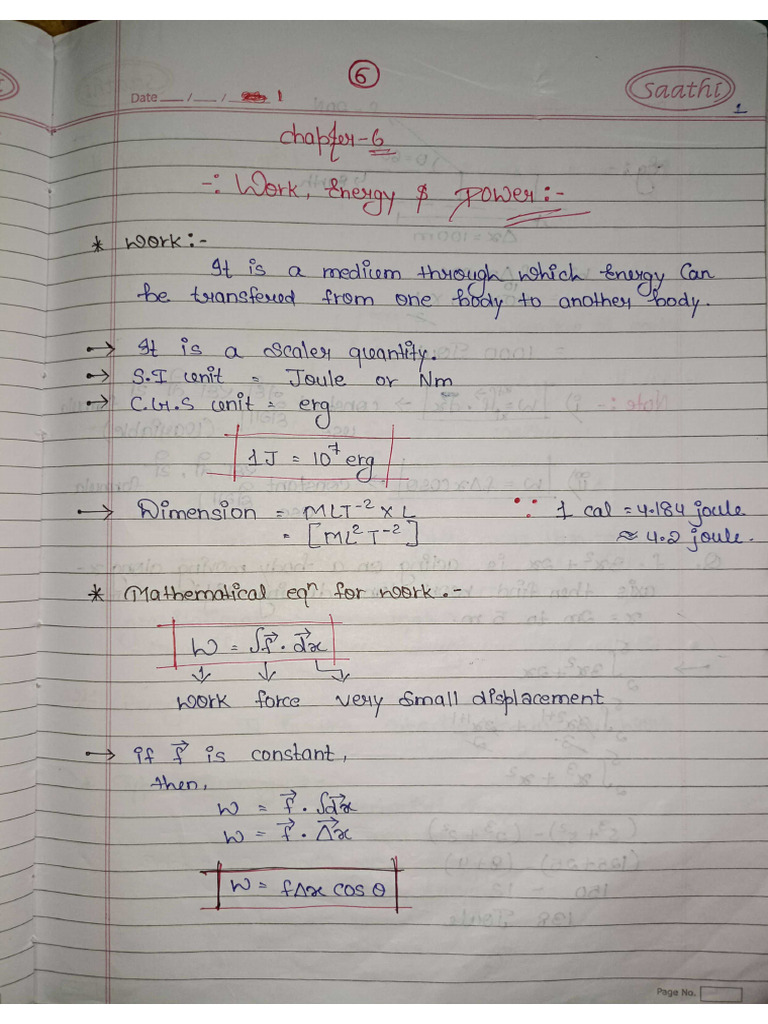 6
Date __/__/__ 1
saathi
1
Chapter-6
-: Work, Energy & Power:-
* Work:-
It is a medium through which Energy Can
be transfered from one body to another body.
→ It is a Scaler quantity.
→ S.I unit = Joule or Nm
→ C.G.S unit = erg
1 J = 10⁷ erg
→ Dimension = MLT⁻² × L ∵ 1 cal = 4.184 joule
= [ML²T⁻²] ≈ 4.2 joule.
* Mathematical eqⁿ for work.-
W = ∫f⃗ · d⃗x
work force very small displacement
→ if f⃗ is constant,
then,
W = f⃗ · ∫d⃗x
W = f⃗ · Δ⃗x
W = fΔx cos θ
Page No.